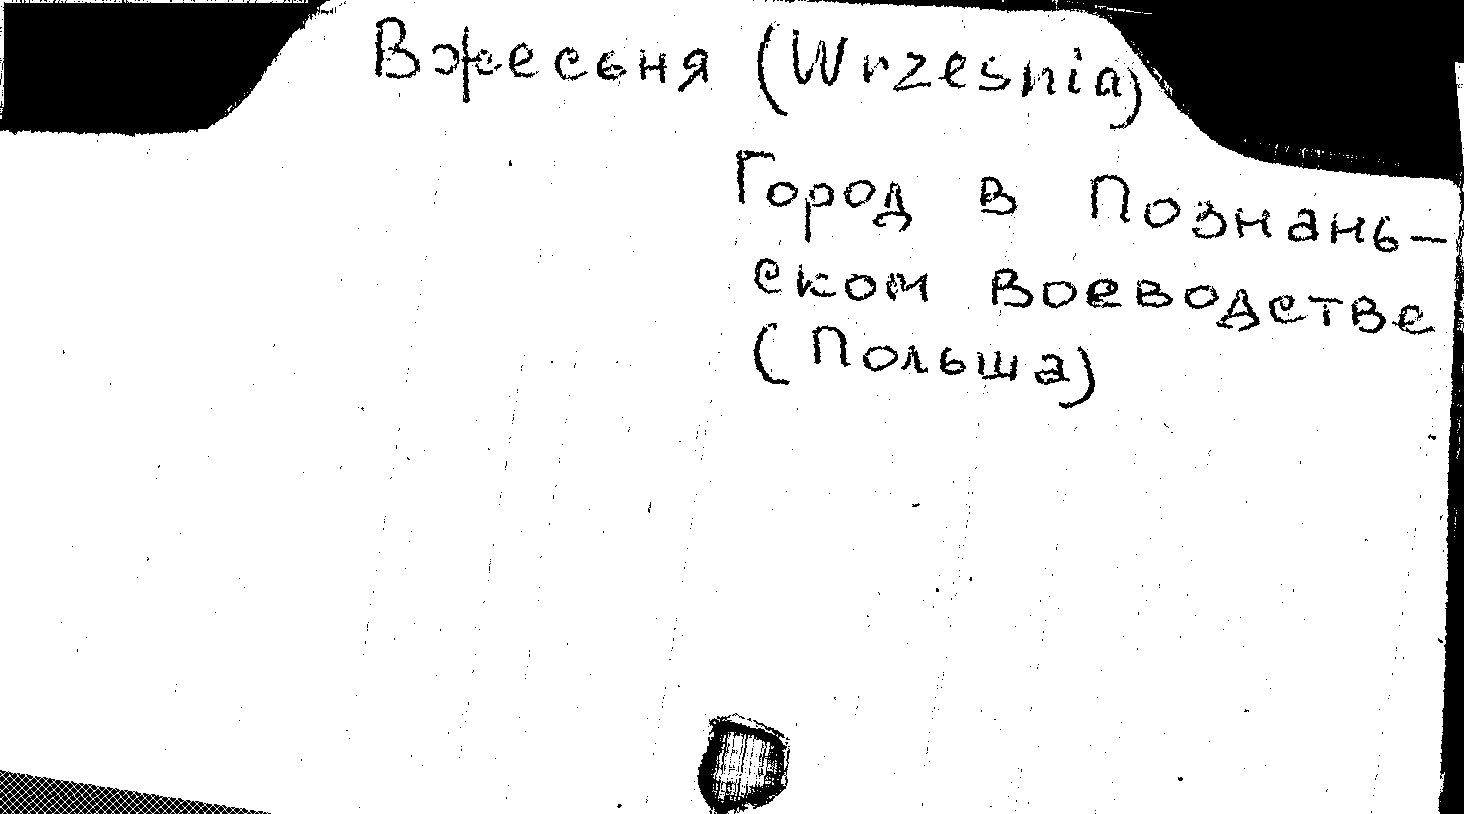 Вжесьня (Wrzesnia)
Город в Познань-
ском воеводстве
(Польша)